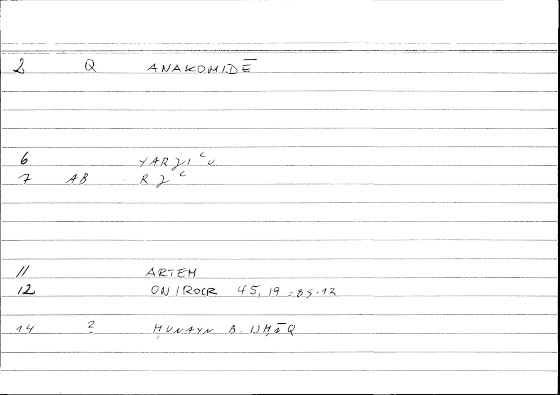 2 Q ANAKOMIDĒ
6 YARJIʿU
7 AB RJʿ
11 ARTEM
12 ONIROCR 45,19 = 85.12
14 ? ḤUNAYN B. ISḤĀQ